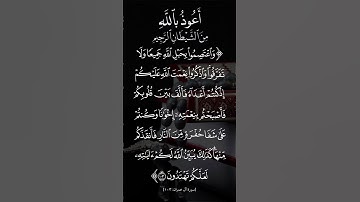 أَعُوذُ بِٱللَّهِ
مِنَ ٱلشَّيْطَانِ ٱلرَّجِيمِ
﴿وَٱعْتَصِمُوا۟ بِحَبْلِ ٱللَّهِ جَمِيعًا وَلَا
تَفَرَّقُوا۟ وَٱذْكُرُوا۟ نِعْمَتَ ٱللَّهِ عَلَيْكُمْ
إِذْ كُنتُمْ أَعْدَآءً فَأَلَّفَ بَيْنَ قُلُوبِكُمْ
فَأَصْبَحْتُم بِنِعْمَتِهِۦٓ إِخْوَٰنًا وَكُنتُمْ
عَلَىٰ شَفَا حُفْرَةٍ مِّنَ ٱلنَّارِ فَأَنقَذَكُم
مِّنْهَا كَذَٰلِكَ يُبَيِّنُ ٱللَّهُ لَكُمْ ءَايَٰتِهِۦ
لَعَلَّكُمْ تَهْتَدُونَ ١٠٣﴾
[سورة آل عمران: ١٠٣]